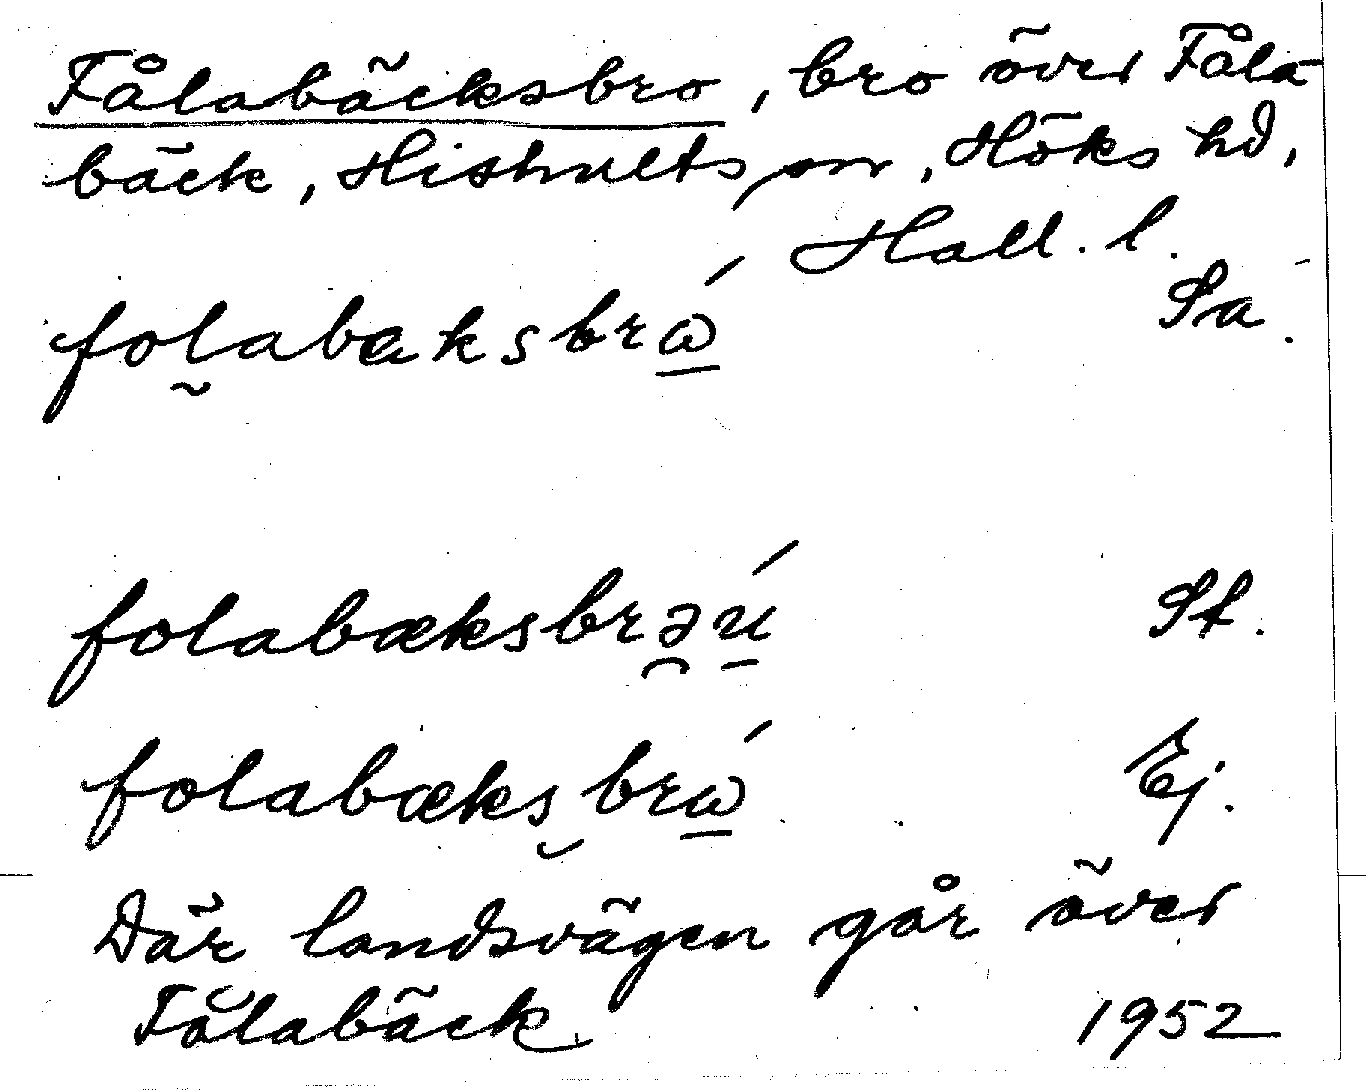 Fålabäcksbro, bro över Fåla-
bäck, Hishults sn, Höks hd,
Hall. l.
folabæksbrɷ́ Sa.
folabæksbrəú Sf.
folabæksbrɷ́ Ej.
Där landsvägen går över
Fålabäck 1952